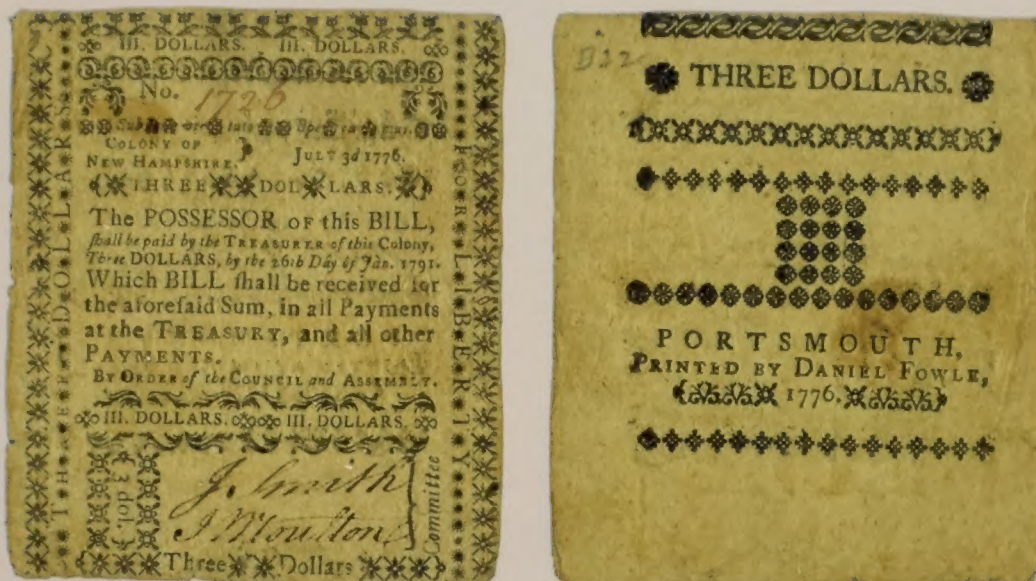 III. DOLLARS. III. DOLLARS.
No. 1726
COLONY OF
NEW HAMPSHIRE. } JULY 3d 1776.
THREE DOLLARS.
The POSSESSOR OF this BILL,
ſhall be paid by the TREASURER of this Colony,
Three DOLLARS, by the 26th Day of Jan. 1791.
Which BILL ſhall be received for
the aforeſaid Sum, in all Payments
at the TREASURY, and all other
PAYMENTS.
BY ORDER of the COUNCIL and ASSEMBLY.
III. DOLLARS. III. DOLLARS.
3 dol.
J. Smith
J. Moulton
Committee
Three Dollars
FOR LIBERTY
B22
THREE DOLLARS.
PORTSMOUTH,
PRINTED BY DANIEL FOWLE,
1776.